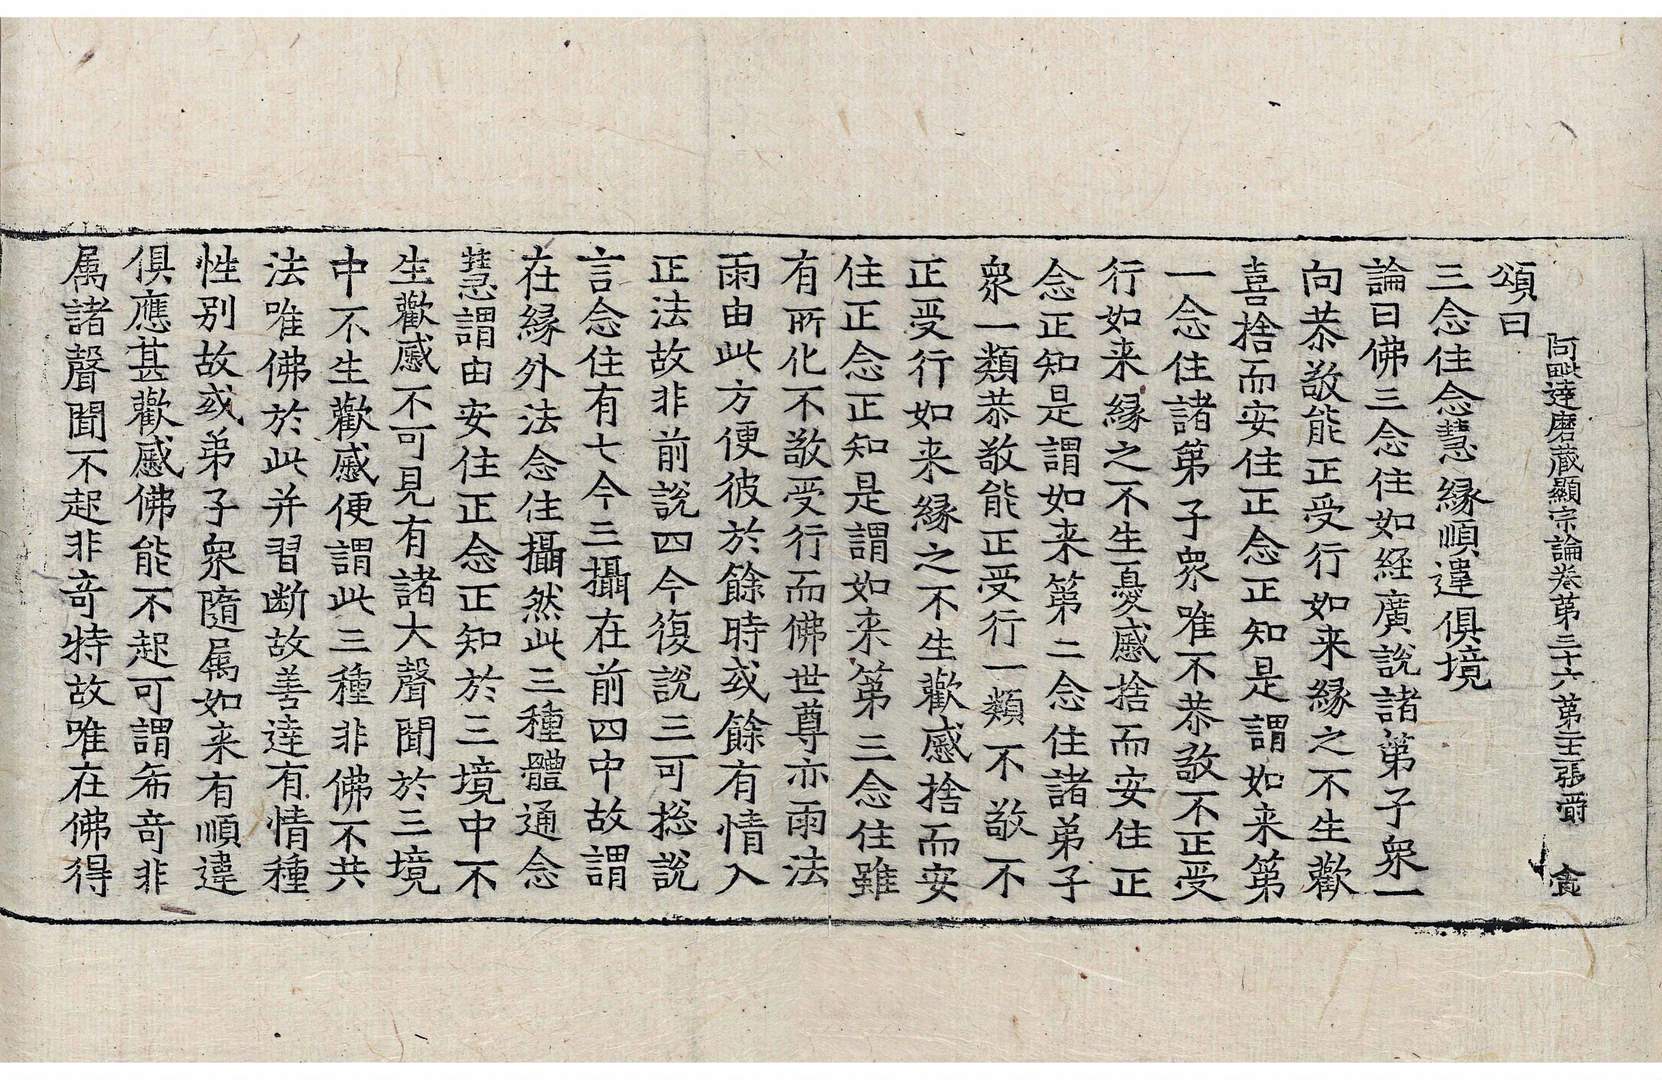 阿毗達磨藏顯宗論卷第三十六第三張 爵 禽
頌曰
三念住念慧縁順違俱境
論曰佛三念住如經廣說諸第子衆一
向恭敬能正受行如来縁之不生歡
喜捨而安住正念正知是謂如来第
一念住諸第子衆唯不恭敬不正受
行如来縁之不生憂慼捨而安住正
念正知是謂如来第二念住諸弟子
衆一類恭敬能正受行一類不敬不
正受行如来縁之不生歡慼捨而安
住正念正知是謂如来第三念住雖
有所化不敬受行而佛世尊亦雨法
雨由此方便彼於餘時或餘有情入
正法故非前說四今復說三可捴說
言念住有七今三攝在前四中故謂
在縁外法念住攝然此三種體通念
慧謂由安住正念正知於三境中不
生歡慼不可見有諸大聲聞於三境
中不生歡慼便謂此三種非佛不共
法唯佛於此并習断故善達有情種
性别故或弟子衆隨属如来有順違
俱應甚歡慼佛能不起可謂希奇非
属諸聲聞不起非奇特故唯在佛得